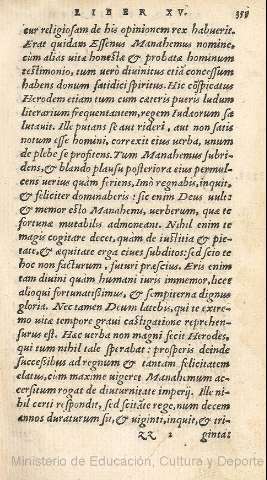 LIBER XV. 358
cur religiosam de his opinionem rex habuerit.
Erat quidam Essenus Manahemus nomine,
cum alias vitæ honestæ & probatæ hominum
testimonio, tum uerò diuinitus etiā concessum
habens donum fatidici spiritus. Hic cōspicatus
Herodem etiam tum cum cæteris pueris ludum
literarium frequentantem, regem Iudæorum sa
lutauit. Ille putans se aut rideri, aut non satis
notum esse homini, correxit eius uerba, unum
de plebe se profitens. Tum Manahemus subri-
dens, & blando plausu posteriora eius permul-
cens uerius quàm feriens, Imò regnabis, inquit,
& feliciter dominaberis: sic enim Deus uult:
& memor esto Manahemi, uerberum, quæ te
fortunæ mutabilis admoneant. Nihil enim te
magis cogitare decet, quàm de iustitia & pie-
tate, & æquitate erga ciues subditos: sed scio te
hoc non facturum, futuri præscius. Eris enim
tam diuini quàm humani iuris immemor, licet
alioqui fortunatissimus, & sempiterna dignus
gloria. Nec tamen Deum latebis, qui te extre-
mo uitæ tempore graui castigatione reprehen-
surus est. Hæc uerba non magni fecit Herodes,
qui tum nihil tale sperabat: prosperis deinde
successibus ad regnum & tantam felicitatem
elatus, cum maximè uigeret Manahemum ac-
cersitum rogat de diuturnitate imperij. Ille ni-
hil certi respondit, sed scitāte rege, num decem
annos duraturum sit, & uiginti, inquit, & tri-
ZZ 2 ginta:
Ministerio de Educación, Cultura y Deporte